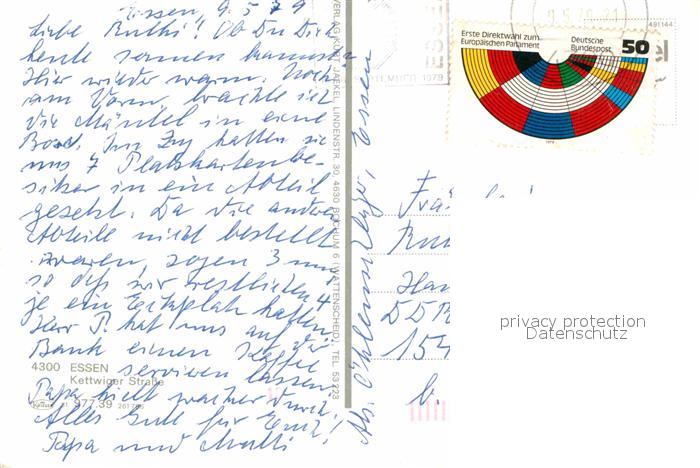 Essen 9.5.79
Liebe Ruthi! Ob Du Dich
heute sonnen kannst?
Hier wieder warm. Noch
am Vorm. brachte ich
die Mäntel in eine
Im Zug hatten sie
uns 7 Platzkartenbe-
sitzer in ein Abteil
gesetzt. Da die anderen
Abteile nicht bestellt
waren, zogen 3 um
so daß wir restlichen 4
je ein Eckplatz hatten
Herr P. hat uns auf der
Bank einen Kaffee
servieren lassen
Papa hielt wacker durch.
Alles Gute für Euch!
Papa und Mutti
4300 ESSEN
Kettwiger Straße
977.39
VERLAG KURT JAEKEL, LINDENSTR. 30, 4630 BOCHUM 6 (WATTENSCHEID), TEL. 53223
Essen
9.5.79-21
1979
491144
Erste Direktwahl zum
Europäischen Parlament
Deutsche
Bundespost
50
1979
Han
DDR
154
b.
privacy protection
Datenschutz